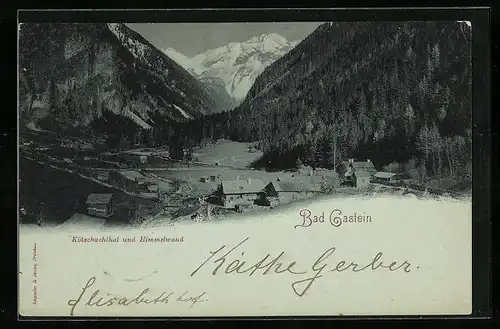 Bad Gastein
Kötschachthal und Himmelwand
Käthe Gerber.
Elisabeth hof.